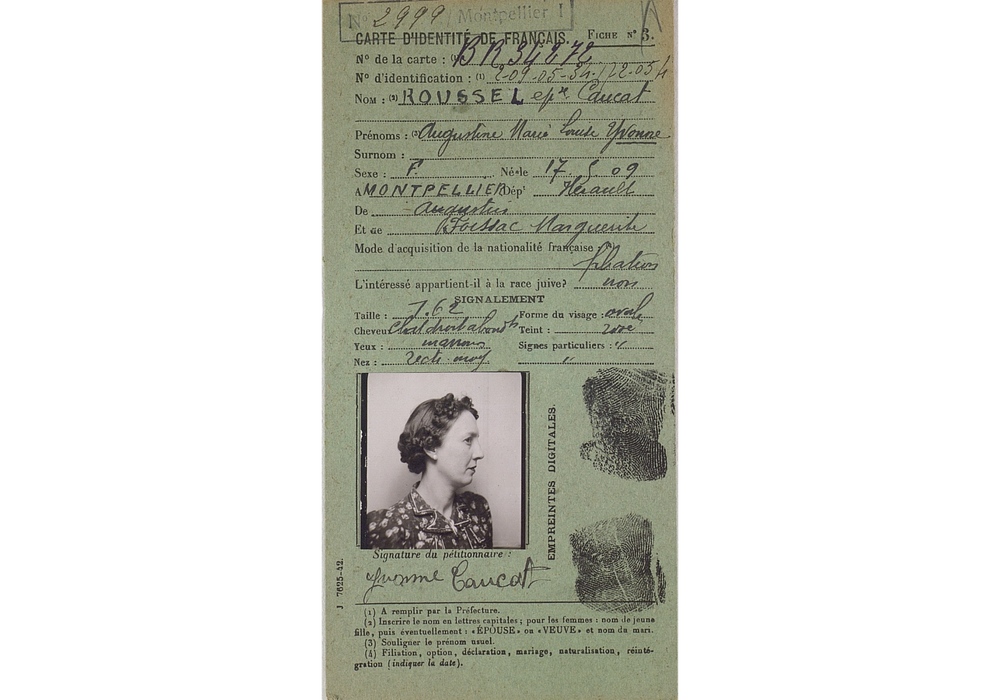 N° 2999 Montpellier I
CARTE D'IDENTITÉ DE FRANÇAIS. FICHE N° 3.
N° de la carte : (1) BR34272
N° d'identification : (1) 2-09-05-34-172-054
NOM : (2) ROUSSEL épse Caucat
Prénoms : (3) Augustine Marie Louise Yvonne
Surnom :
Sexe : F. Né le 17. 5 09
A MONTPELLIER Dépt Hérault
De Augustin
Et de Marguerite
Mode d'acquisition de la nationalité française (4)
filiation
L'intéressé appartient-il à la race juive? non
SIGNALEMENT
Taille : 1.62 Forme du visage : ovale
Cheveux Teint :
Yeux : marrons Signes particuliers : "
Nez : recti-moy "
EMPREINTES DIGITALES.
Signature du pétitionnaire :
Yvonne Caucat
J 7625-42.
(1) A remplir par la Préfecture.
(2) Inscrire le nom en lettres capitales ; pour les femmes : nom de jeune
fille, puis éventuellement : «ÉPOUSE» ou «VEUVE» et nom du mari.
(3) Souligner le prénom usuel.
(4) Filiation, option, déclaration, mariage, naturalisation, réinté-
gration (indiquer la date).